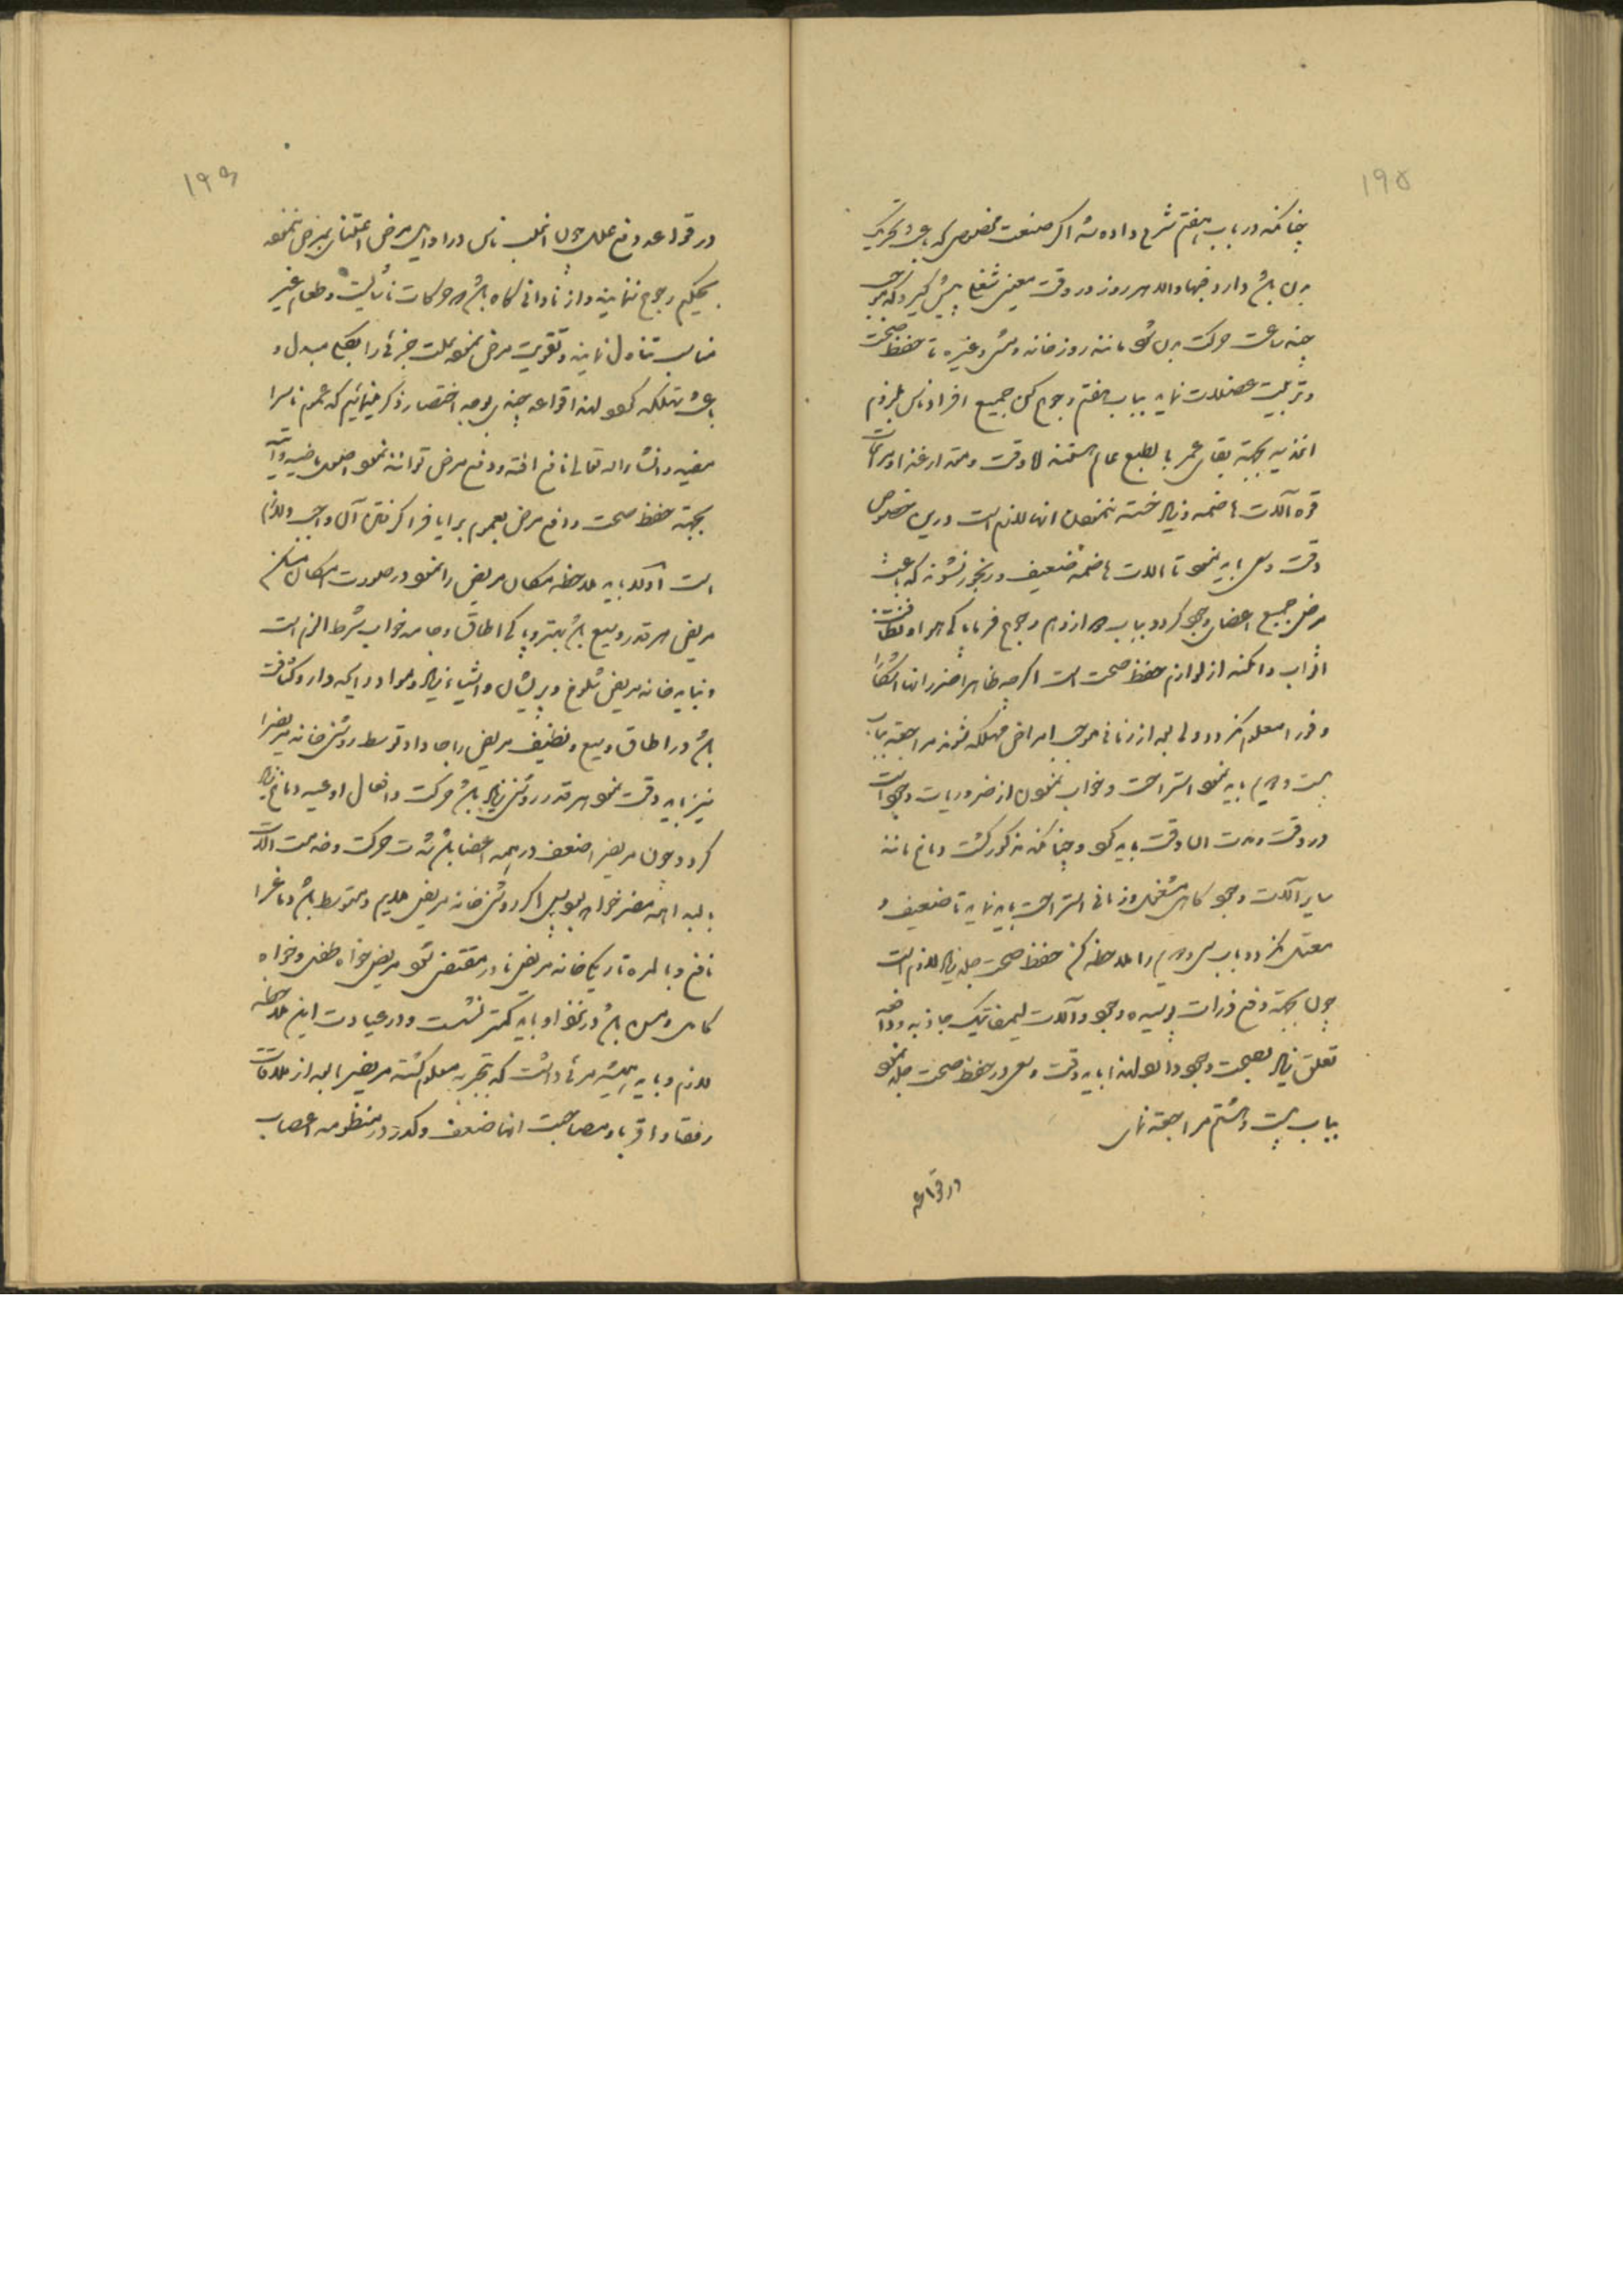 ۱۹۵
چنانکه در باب هفتم شرح داده شد اگر صنعت مخصوصی که باعث تحریک
بدن باشد دارد فبها والا هر روز در وقت معین شغلی پیش گیرد که موجب
چند ساعت حرکت بدن شود مانند روزخانه و مشی و غیره تا حفظ صحت
و تربیت عضلات نماید بباب هفتم رجوع کن جمیع افراد ناس بلزوم
اغذیه بجهة بقای عمر بالطبع عالم هستند اما وقت و مقدار غذا و مراعات
قوه آلات هاضمه و زیاد خسته ننمودن آنها لازم است درین خصوص
دقت و سعی باید نمود تا آلات هاضمه ضعیف و رنجور نشوند که باعث
مرض جمیع اعضای وجود گردد بباب دوازدهم رجوع فرما پاکی هوا و نظافت
اثواب و امکنه از لوازم حفظ صحت است اگرچه ظاهرا ضرر آنها آشکارا
و فورا معلوم نگردد ولی بعد از زمانی موجب امراض مهلکه شوند مراجعه بباب
بیست و دویم باید نمود استراحت و خواب نمودن از ضروریات وجود است
در وقت و مدت آن دقت باید کرد و چنانکه مذکور گشت دماغ مانند
سایر آلات وجود کاهی مشغول و زمانی استراحت باید نماید تا ضعیف و
معتل نگردد باب سی و دویم را ملاحظه کن حفظ صحت جلد زیاد لازم است
چون بجهة دفع ذرات پوسیده وجود و آلات لیمفاتیک جاذبه و دافعه
تعلق زیاد بصحت وجود دارد لهذا باید دقت و سعی در حفظ صحت جلد نمود
بباب بیست و هشتم مراجعه نمای
در قواعد
۱۹۶
در قواعد دفع علل چون اغلب ناس در اوایل مرض اعتنای بمرض ننموده
بحکیم رجوع ننمایند و از نادانی گاه باشد که حرکات ناشایسته و طعام غیر
مناسب تناول نمایند و تقویت مرض نموده علت جزئی را بکلی مبدل و
باعث تهلکه گردد لهذا قواعد چندی بوجه اختصار ذکر مینمائیم که عموم ناس را
مفید و انشاء الله تعالی نافع افتد و دفع مرض توانند نمود اصول ماضیه و آتیه
بجهة حفظ صحت و دفع مرض بعموم برایا فرا گرفتن آن واجب و لازم
است اولا باید ملاحظه مکان مریض را نمود در صورت امکان مسکن
مریض هر قدر وسیع باشد بهتر و پاکی اطاق و جامه خواب شرط الزم است
و نباید خانه مریض شلوغ و پریشان و اشیاء زیاد و مواد رایحه دار و کثافت
باشد در اطاق وسیع و نظیف مریض را جا داد توسط روشنی خانه مریض را
نیز باید دقت نمود هر قدر روشنی زیاد باشد حرکت و افعال اوعیه دماغ زیاد
گردد چون مریض را ضعف در همه اعضا باشد شدت حرکت و خدمت آلات
بالبداهه مضر خواهد بود پس اگر روشنی خانه مریض ملایم و متوسط باشد دماغ را
نافع و بالمره تاریکی خانه مریض نادر مقتضی شود مریض خواه طفل و خواه
کامل و مسن باشد در نزد او باید کمتر نشست و در عیادت این ملاحظه
لازم و باید همیشه مرئی داشت که بتجربه معلوم گشته مریض را بعد از ملاقات
رفقا و اقربا و مصاحبت آنها ضعف و کدر در منظومه اعصاب